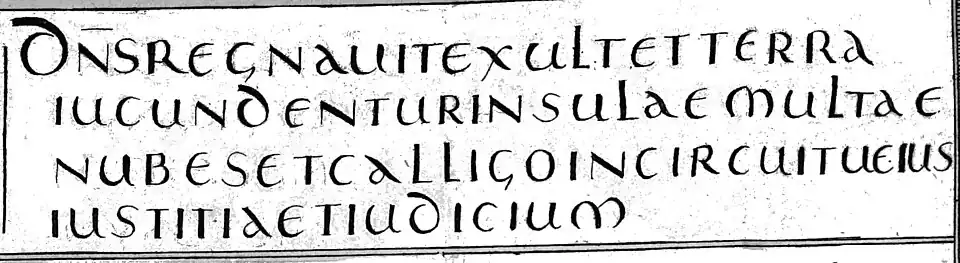 DN̄SREGNAUITEXULTETTERRA
IUCUNDENTURINSULAEMULTAE
NUBESETCALLIGOINCIRCUITUEIUS
IUSTITIAETIUDICIUM